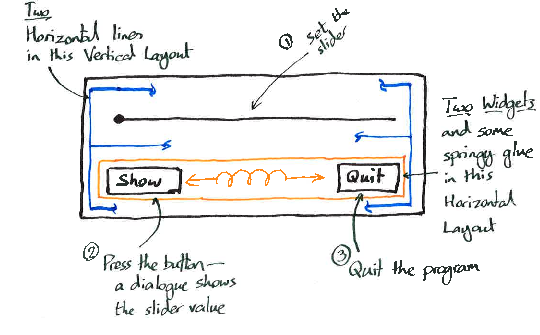 Two
Horizontal lines
in this Vertical Layout
① Set the
slider
Two Widgets
and some
springy glue
in this
Horizontal
Layout
Show
Quit
② Press the button—
a dialogue shows
the slider value
③ Quit the program